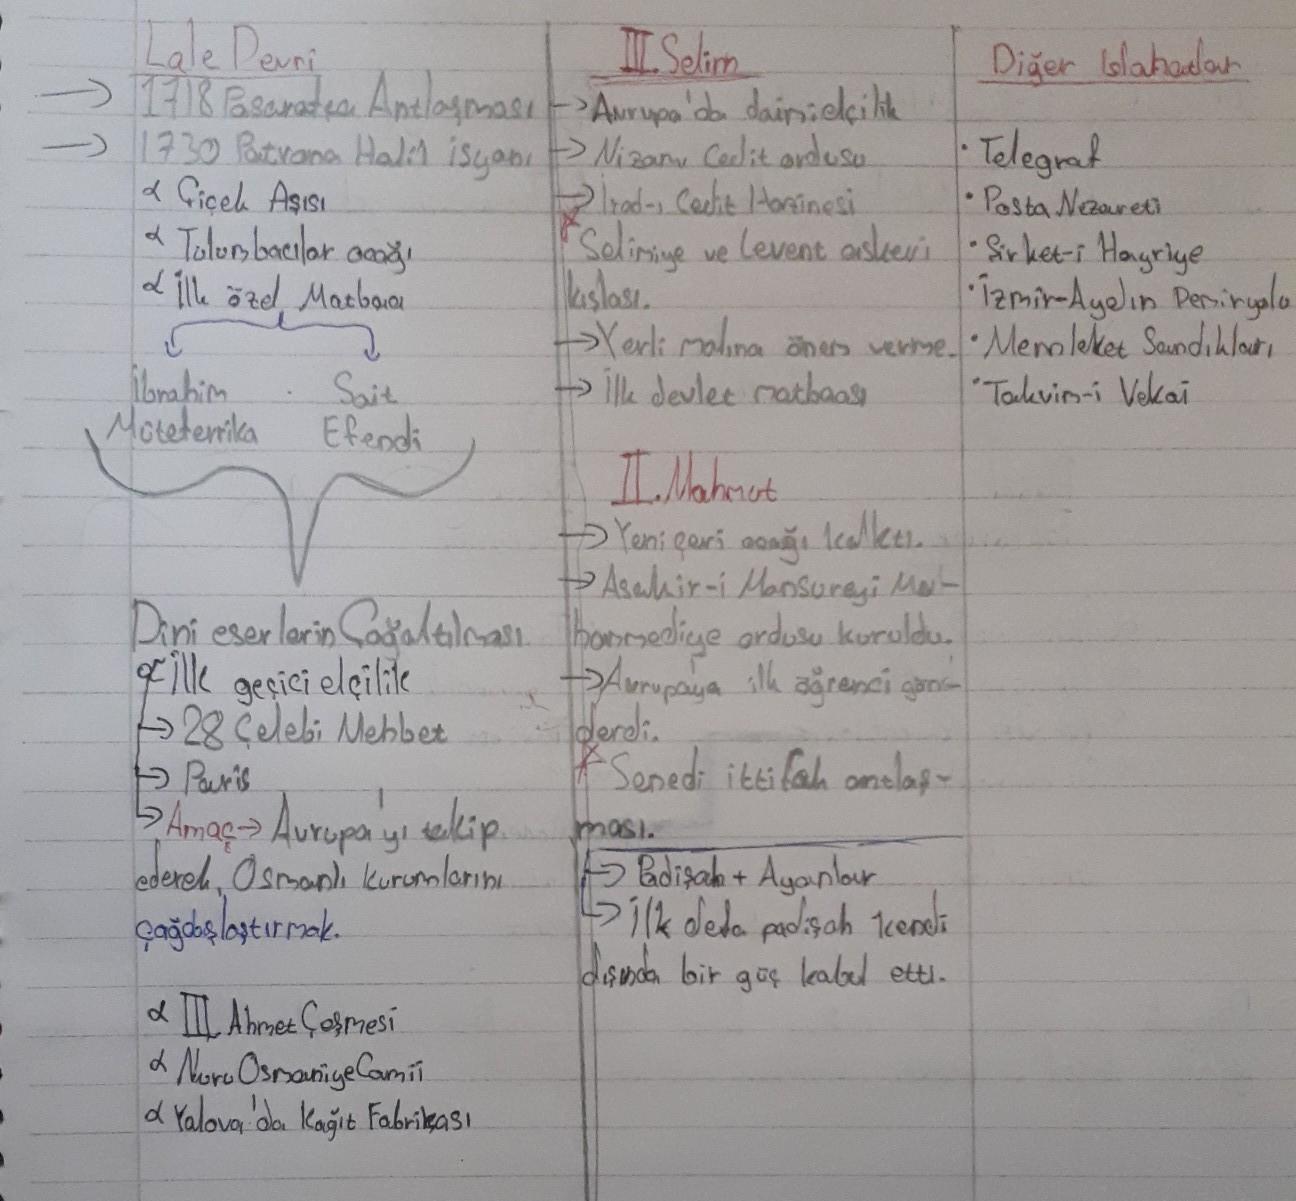 Lale Devri
→ 1718 Pasarofça Antlaşması
→ 1730 Patrona Halil isyanı
α Çiçek Aşısı
α Tulumbacılar ocağı
α İlk özel Matbaa
İbrahim . Sait
Müteferrika Efendi
Dini eserlerin Çoğaltılması
α İlk geçici elçilik
→ 28 Çelebi Mehbet
→ Paris
→ Amaç → Avrupa'yı takip
ederek, Osmanlı kurumlarını
çağdaşlaştırmak.
α III. Ahmet Çeşmesi
α Nuru Osmaniye Camii
α Yalova'da Kağıt Fabrikası
III. Selim
→ Avrupa'da daimi elçilik
→ Nizamı Cedit ordusu
→ İrad-ı Cedit Hazinesi
* Selimiye ve Levent askeri
kışlası.
→ Yerli malına önem verme.
→ İlk devlet matbaası
II. Mahmut
→ Yeniçeri ocağı kalktı.
→ Asakir-i Mansureyi Mu-
hammediye ordusu kuruldu.
→ Avrupaya ilk öğrenci gön-
derdi.
* Senedi ittifak antlaş-
ması.
→ Padişah + Ayanlar
→ İlk defa padişah kendi
dışında bir güç kabul etti.
Diğer Islahatlar
• Telegraf
• Posta Nezareti
• Şirket-i Hayriye
• İzmir-Aydın Demiryolu
• Memleket Sandıkları
• Takvim-i Vekai